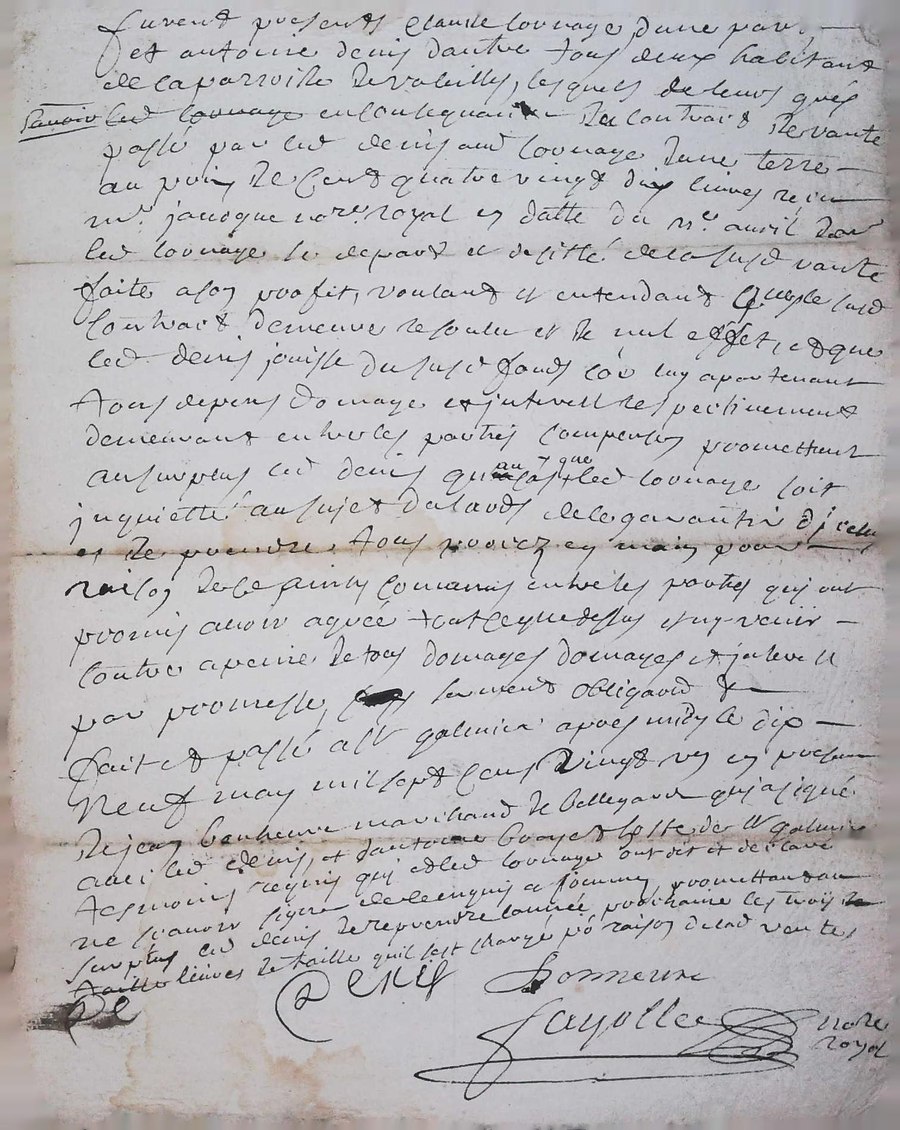 furent presents Claude lornage dune par,
et antoine denis dautre tous deux habitant
de la parroisse de valeille, lesquels de leurs grés
scavoir led lornage ensuitte du contract de vante
passé par led denis aud lornage dune terre
au prix de Cent quatre vingt dix livres reçu
mr. jacoque nore royal en datte du me. avril der
led lornage se depart et desiste de la susd vante
faite a son proffit, voulant et entendant que le susd
Contract demeure resoulu et de nul effet, et que
led denis jouisse du susd fonds co~e luy apartenant
tous depens domage et jnterest respectivement
demeurant entre les parties compensés promettent
au surplus led denis qu au cas que led lornage soit
jnquietté au sujet de la garantie dicelui
et de prendre tous procez en main pour
raison de ce ainsy convenus entre les parties qui ont
promis avoir agreé tout ce que dessus et ny venir
contre a peine de tous domages domages et jnterest
par promesse, serment obligaon &
fait et passé a St galmier apres midy le dix
neuf may mil sept Cens vingt un en presence
de jean bonheure marchand de bellegarde qui a signé
avec led denis, et dantoine hoste de St galmier
tesmoins requis qui et led lornage ont dit et declaré
ne scavoir signer de ce enquis et sommés promettant au
surplus led denis de reprendre lannée prochaine les trois
livres de taille quil sest chargé po raison de lad vente
De
Denis Bonneure
Fayolle nore
royal